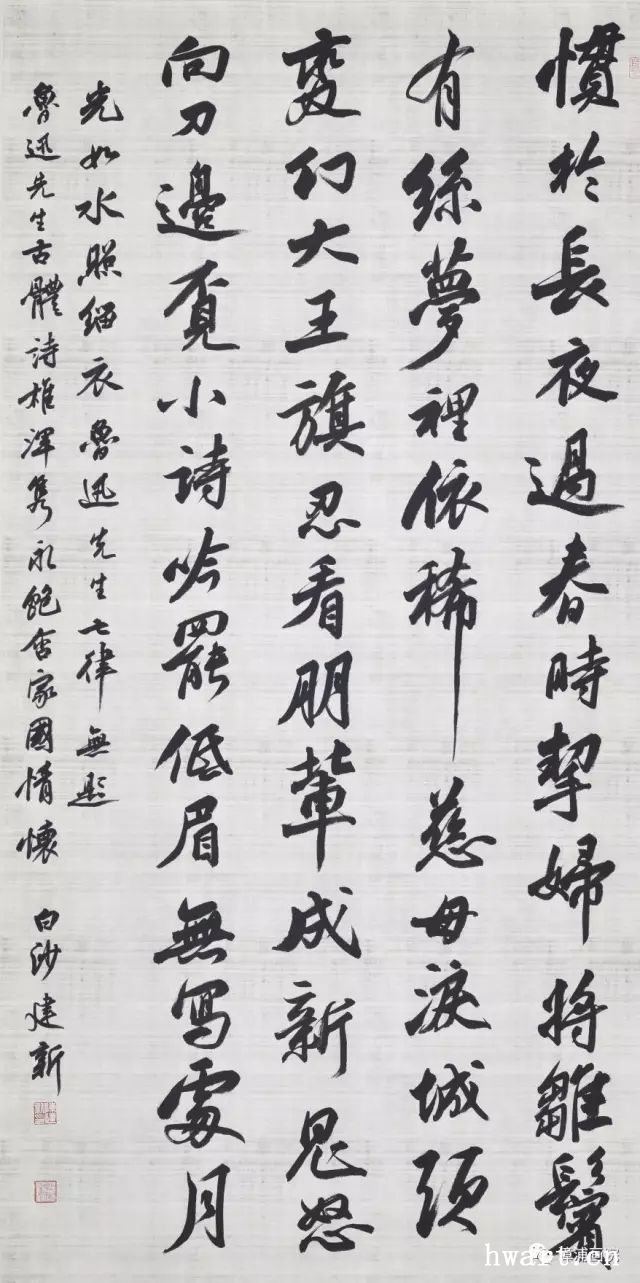 慣於長夜過春時挈婦將雛鬢
有絲夢裡依稀慈母淚城頭
變幻大王旗忍看朋輩成新鬼怒
向刀邊覓小詩吟罷低眉無寫處月
光如水照緇衣魯迅先生七律無題
魯迅先生古體詩雄渾雋永飽含家國情懷 白沙建新
hwart.cn